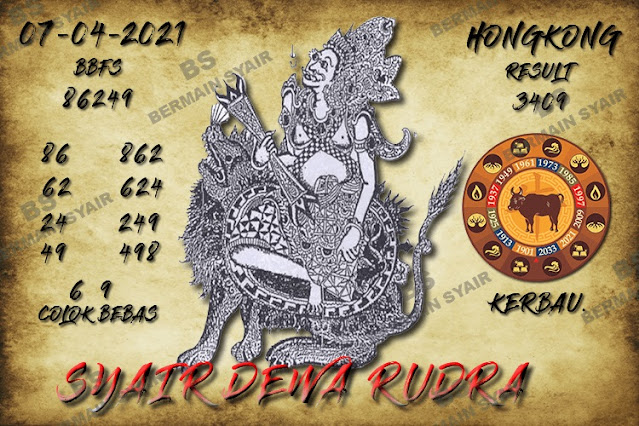 07-04-2021
BBFS
86249
86 862
62 624
24 249
49 498
6 9
COLOK BEBAS
HONGKONG
RESULT
3409
1901 1913 1925 1937 1949 1961 1973 1985 1997 2009 2021 2033
KERBAU.
SYAIR DEWA RUDRA
BS
BERMAIN SYAIR
BS
BERMAIN SYAIR
BERMAIN SYAIR
BERMAIN SYAIR
BERMAIN SYAIR